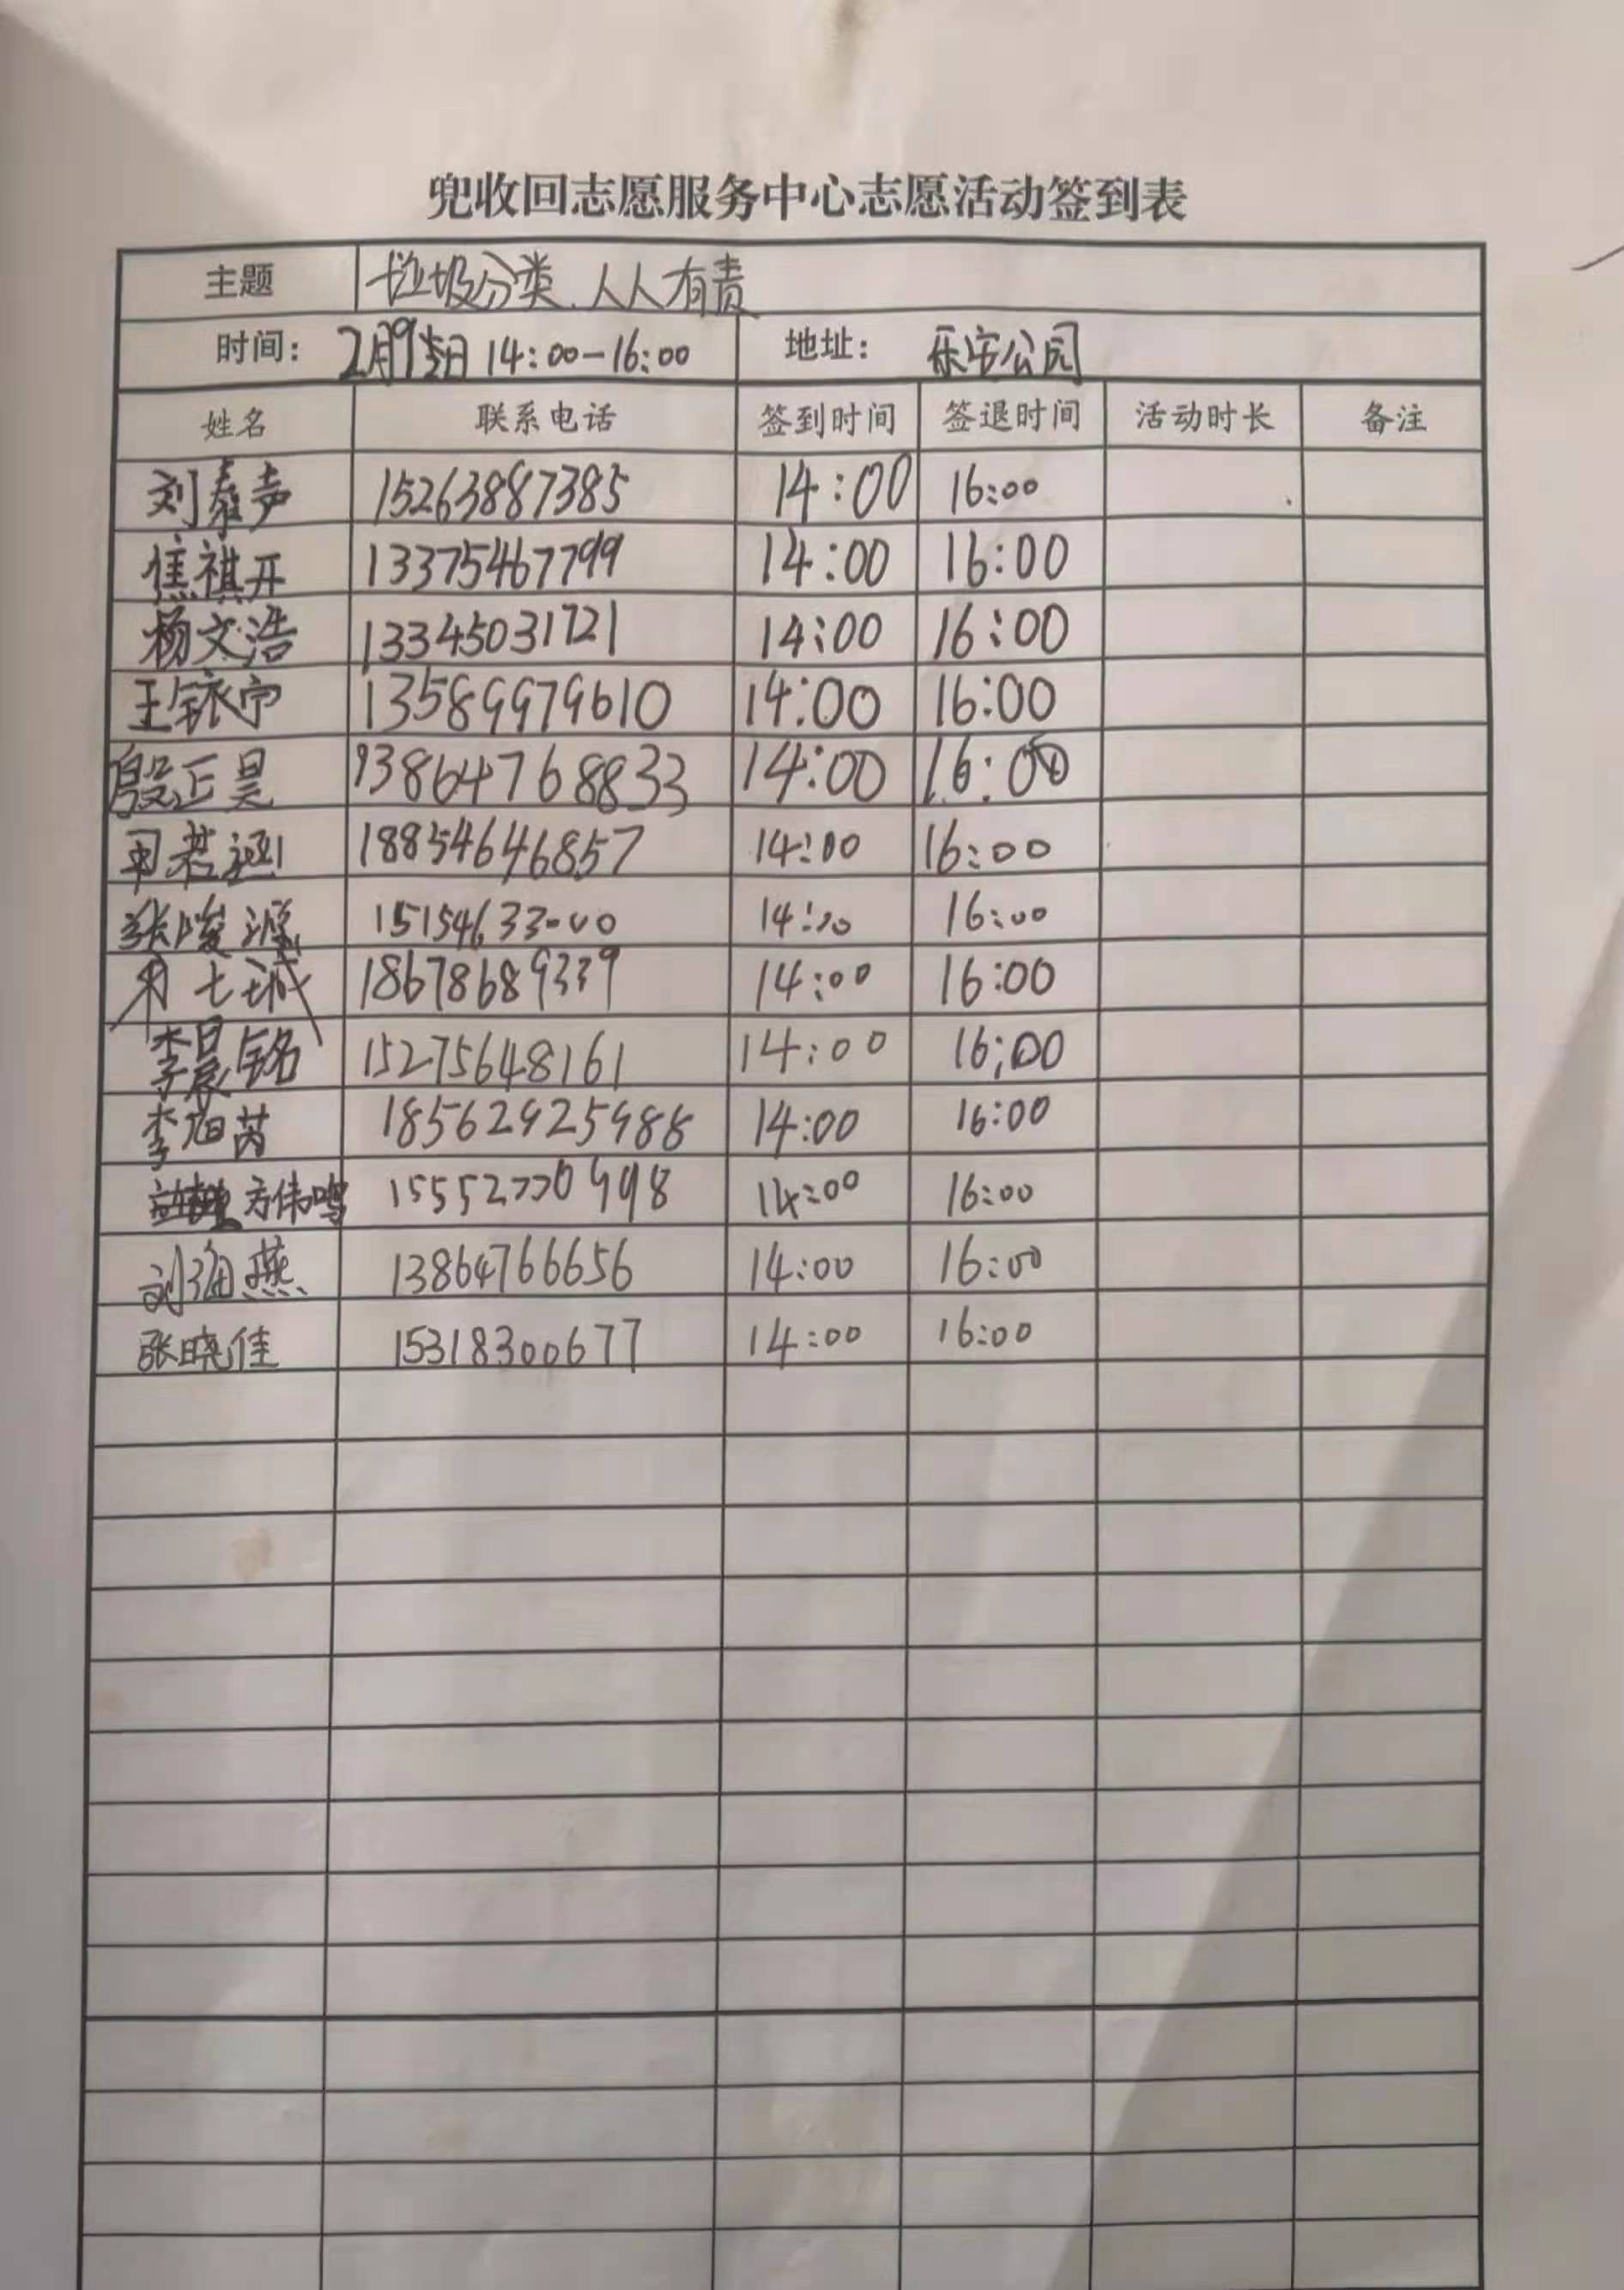 兜收回志愿服务中心志愿活动签到表
主题 垃圾分类.人人有责
时间: 2月9日 14:00-16:00 地址: 乐安公园
姓名 联系电话 签到时间 签退时间 活动时长 备注
刘泰声 15263887385 14:00 16:00
焦祺开 13375467799 14:00 16:00
杨文浩 13345031721 14:00 16:00
王铱宁 13589979610 14:00 16:00
殷正昊 13864768833 14:00 16:00
若涵 18854646857 14:00 16:00
张峻源 14:00 16:00
18678689339 14:00 16:00
李晨铭 15275648161 14:00 16:00
李芮 18562925988 14:00 16:00
方伟鸣 14:00 16:00
刘海燕 13864766656 14:00 16:00
张晓佳 15318300677 14:00 16:00